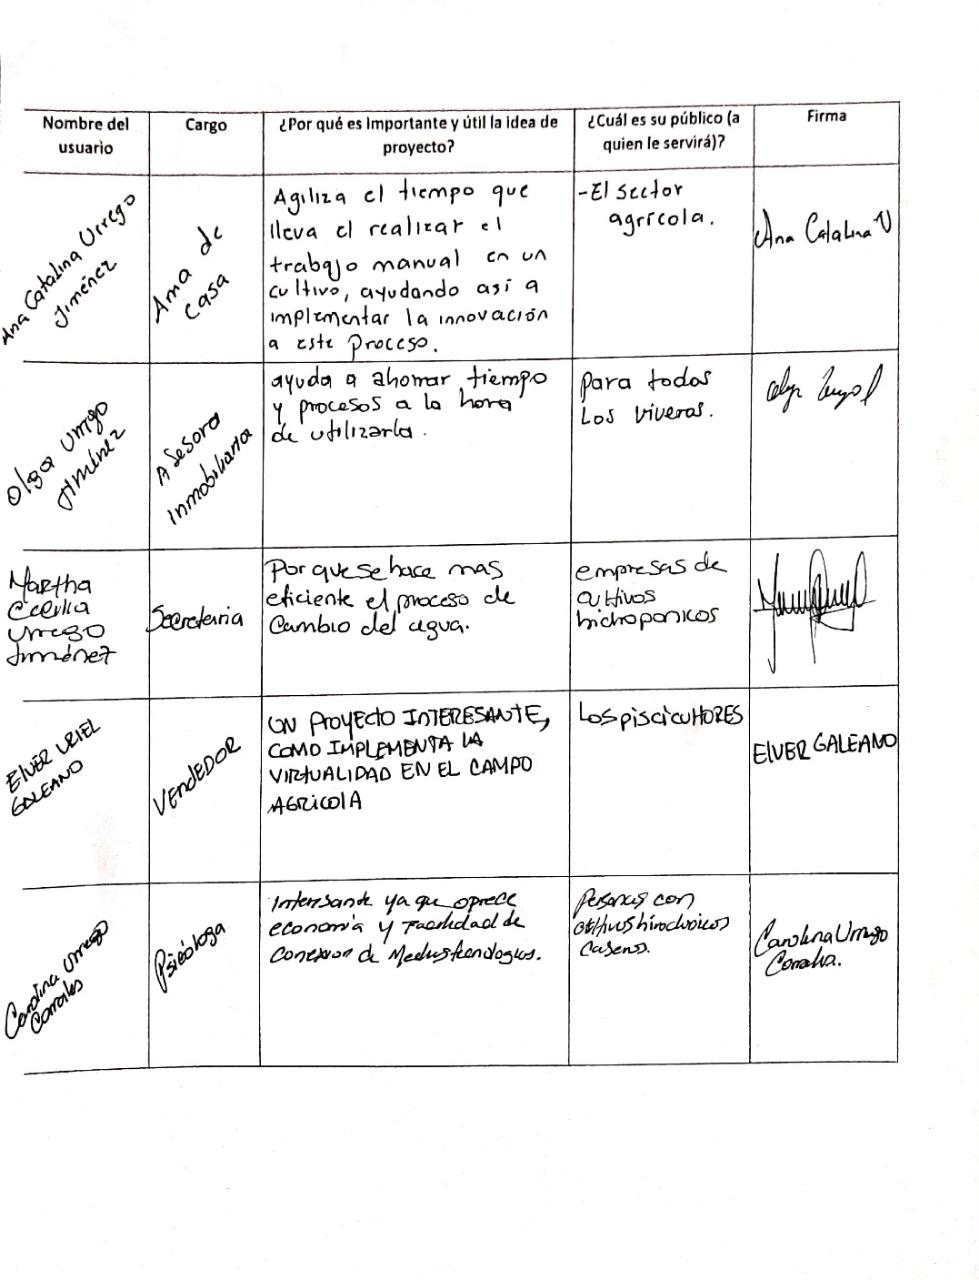 Nombre del
usuario
Cargo
¿Por qué es Importante y útil la idea de
proyecto?
¿Cuál es su público (a
quien le servirá)?
Firma
Ana Catalina Urrego
Jiménez
Ama de
Casa
Agiliza el tiempo que
lleva el realizar el
trabajo manual en un
cultivo, ayudando así a
implementar la innovación
a este proceso.
-El sector
agrícola.
Ana Catalina U
Olga Urrego
Jiménez
Asesora
Inmobiliaria
ayuda a ahorrar tiempo
y procesos a la hora
de utilizarla.
para todos
Los viveros.
Martha
Cecilia
Urrego
Jiménez
Secretaria
Por que se hace mas
eficiente el proceso de
Cambio del agua.
empresas de
cultivos
hichoponicos
ElVER URIEL
GALEANO
VENDEDOR
UN PROYECTO INTERESANTE,
COMO IMPLEMENTA LA
VIRTUALIDAD EN EL CAMPO
AGRICOLA
Los piscicultores
ElVER GALEANO
Carolina Urrego
Corrales
Psicóloga
Interesante ya que oprece
economía y Facilidad de
Conexion de
Personas con
cultivos
caseros.
Carolina Urrego